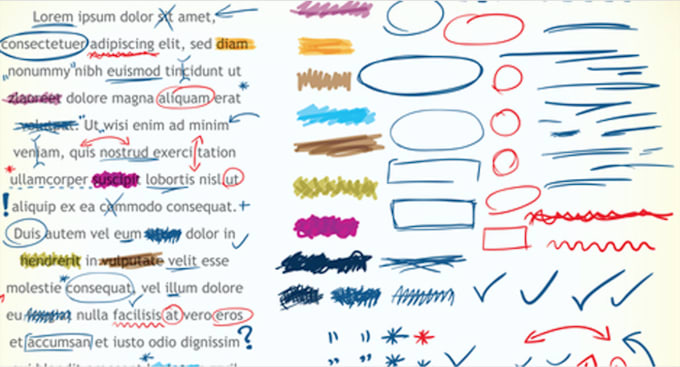 Lorem ipsum dolor sit amet,
consectetuer adipiscing elit, sed diam
nonummy nibh euismod tincidunt ut
laoreet dolore magna aliquam erat
volutpat. Ut wisi enim ad minim
veniam, quis nostrud exerci tation
ullamcorper suscipit lobortis nisl ut
aliquip ex ea commodo consequat.
Duis autem vel eum dolor in
hendrerit in vulputate velit esse
molestie consequat, vel illum dolore
eu nulla facilisis at vero eros
et accumsan et iusto odio dignissim